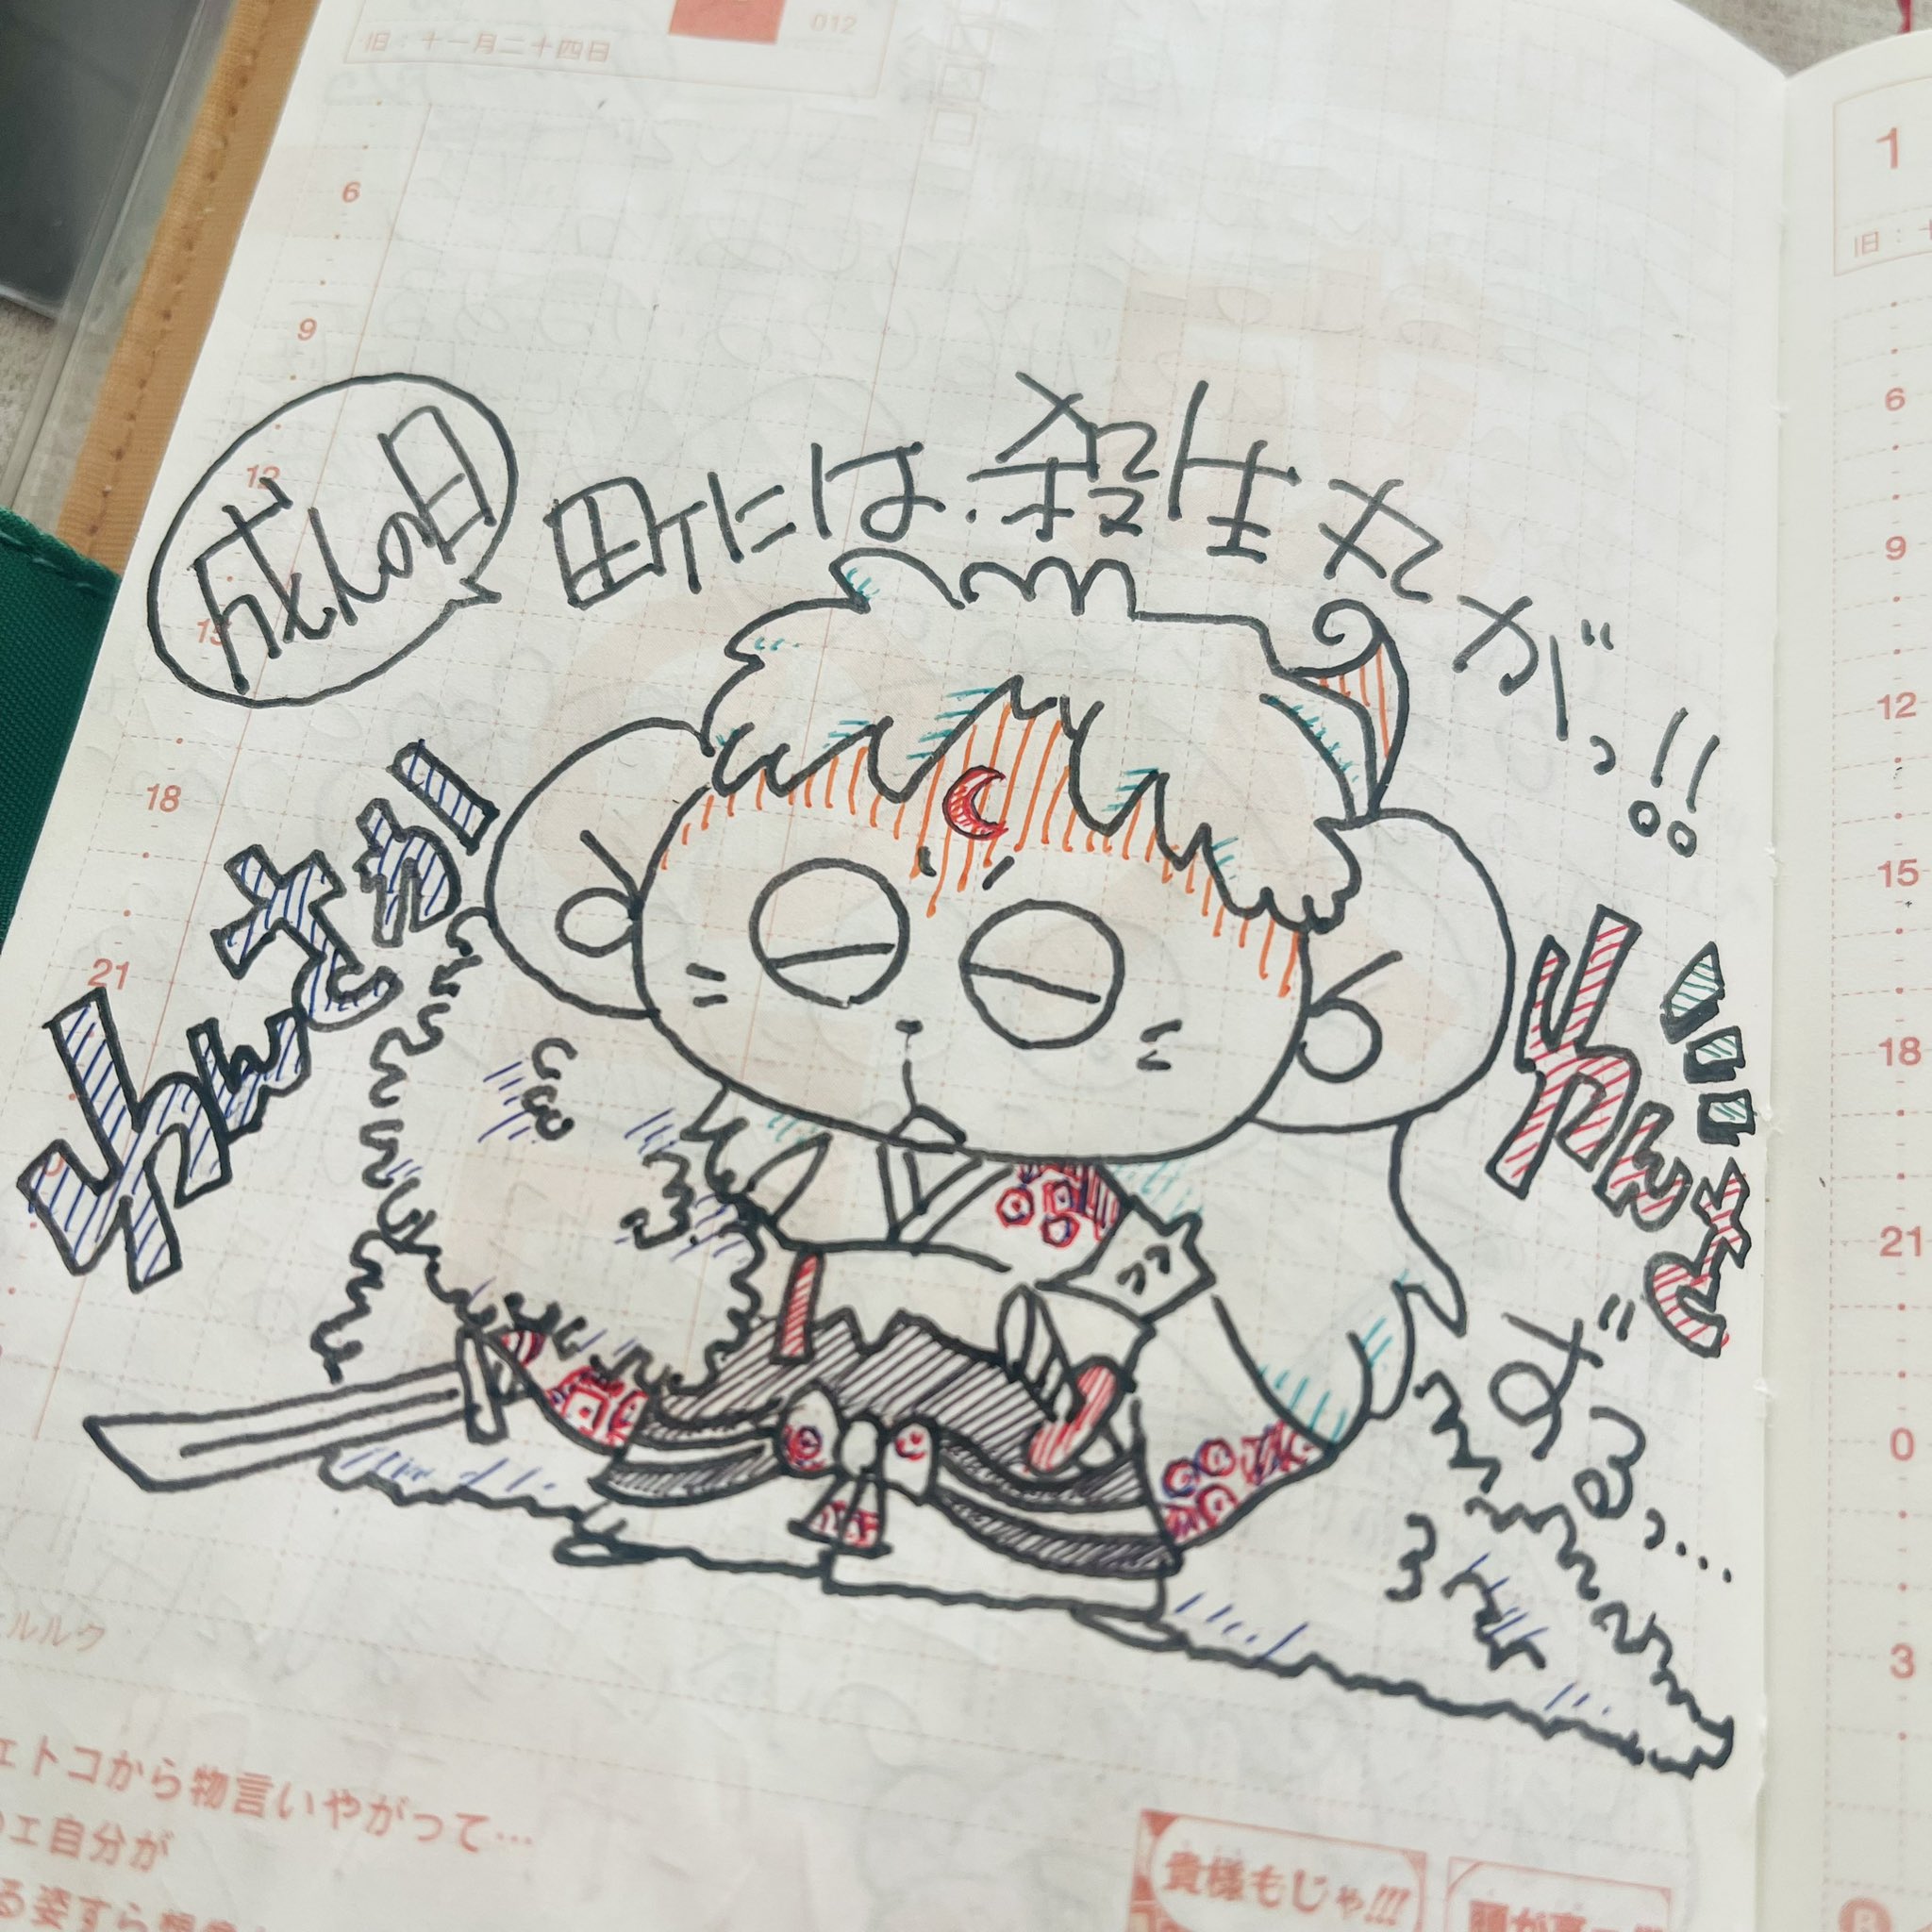 旧：十一月二十四日
012
成人の日
町には殺生丸がっ!!
わんさかー
わんさ
ずるっ…
6
9
12
15
18
21
1
旧：十
6
9
12
15
18
21
0
3
ルルク
ェトコから物言いやがって…
ェ自分が
る姿すら
貴様もじゃ!!!
頭が高